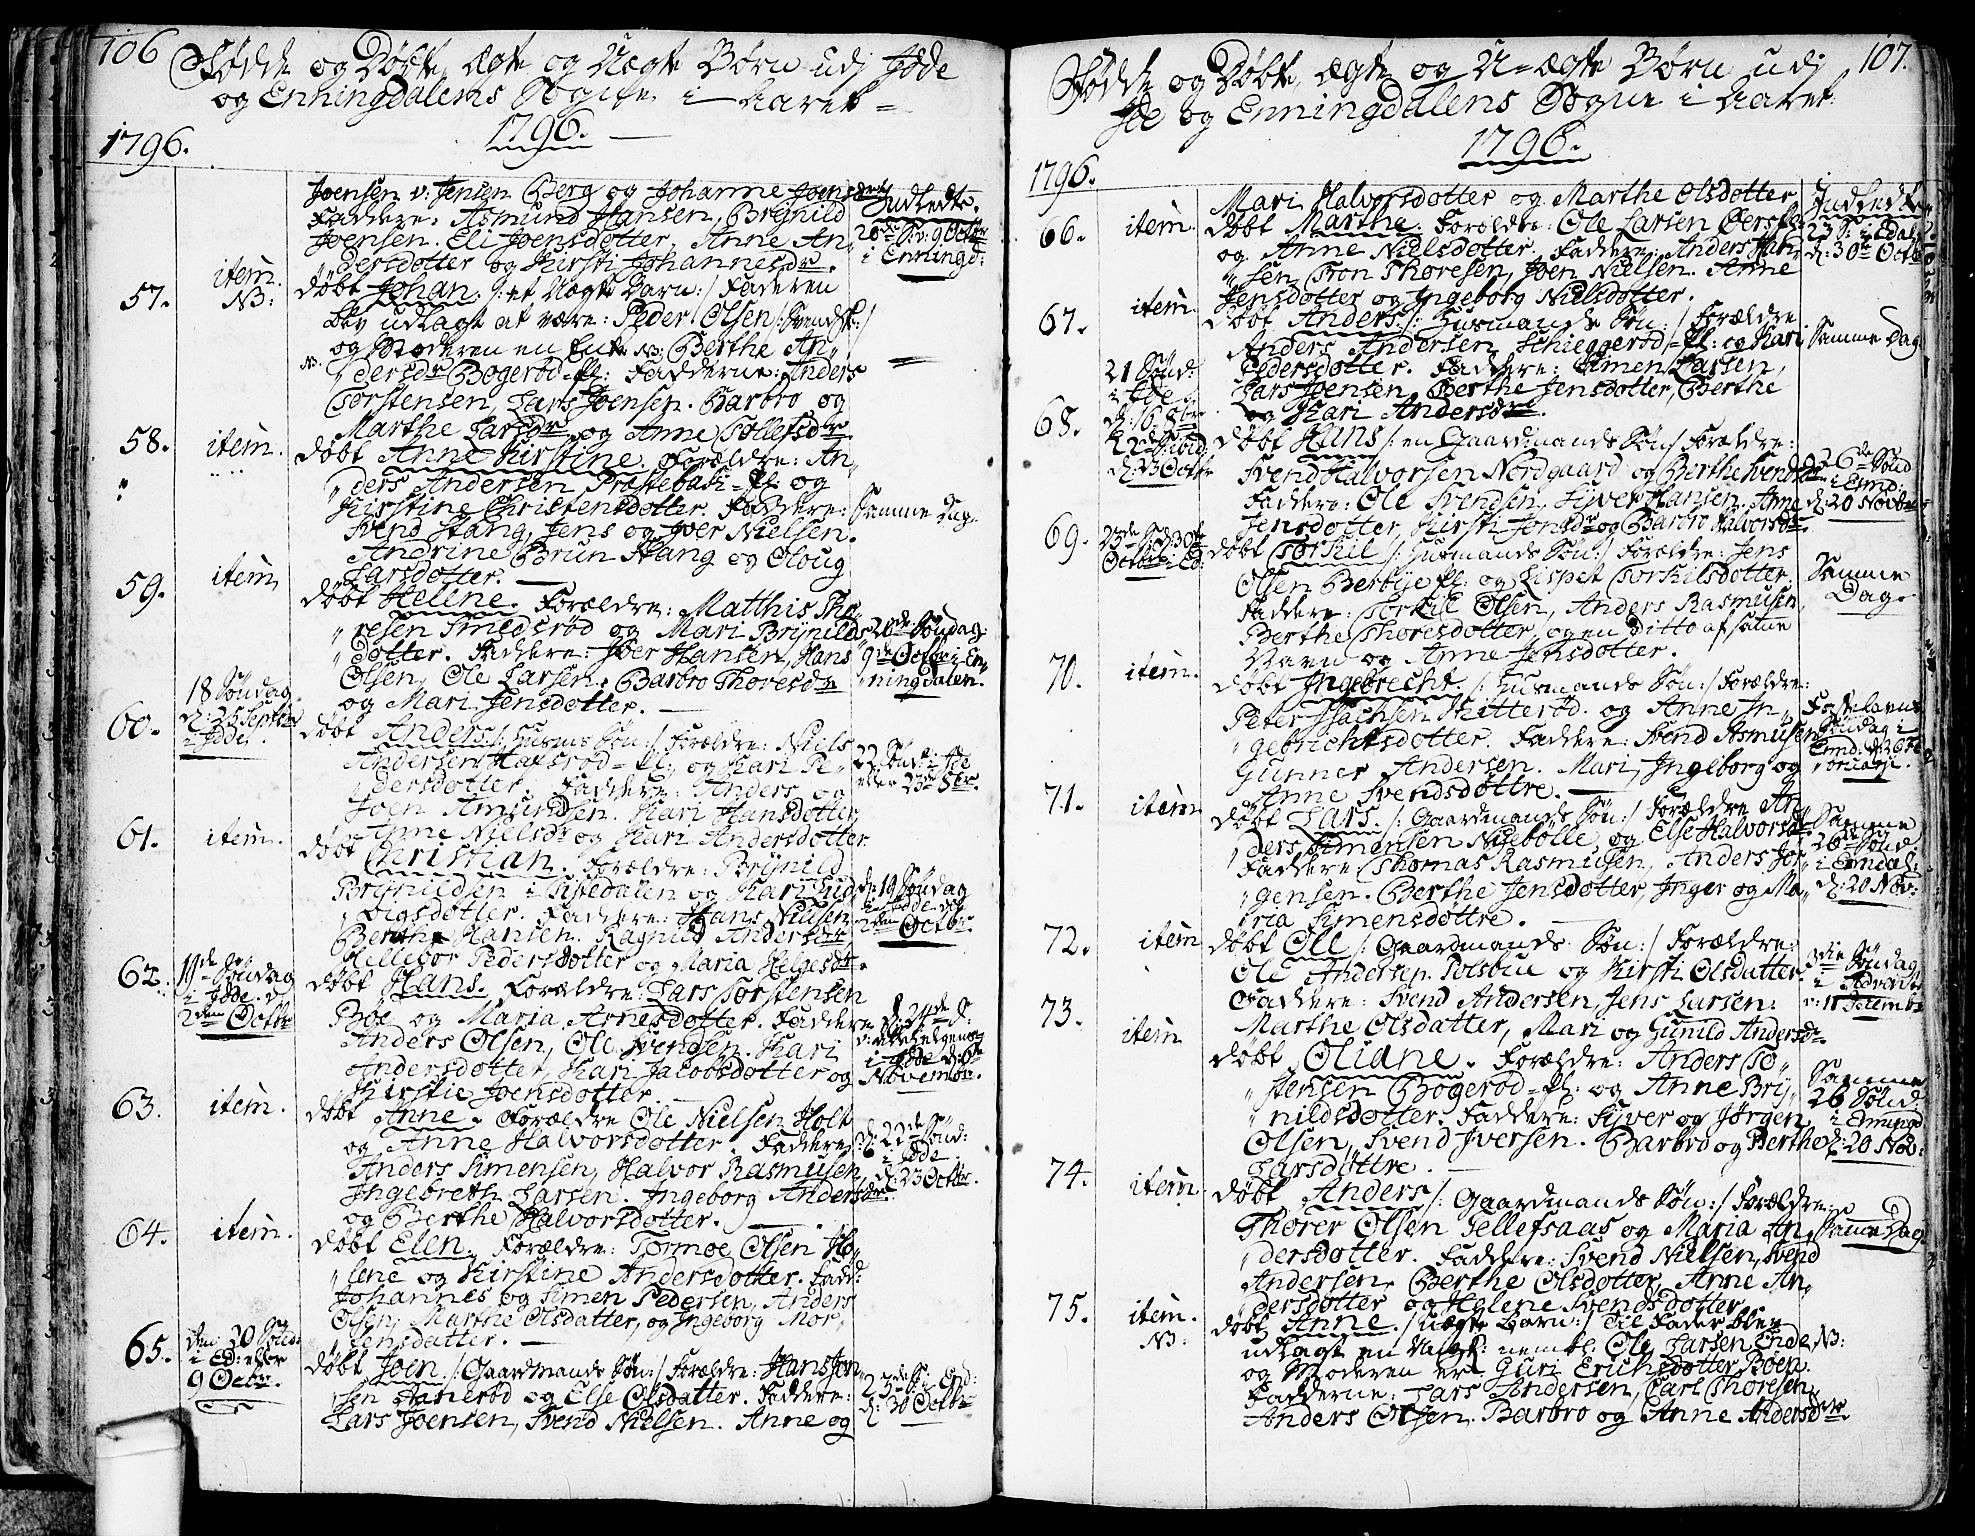 106
Fødde og Døbte, Ægte og Uægte Børn udj Idde
og Enningdalens Sogne i Aaret
1796.
1796.
Joensen v: Jensen Berg og Johanne Joensdotr
Faddere: Asmund Hansen, Brynild
Joensen. Eli Joensdotter, Anne An,,
,,dersdotter og Kirsti Johannesdr.
Indledte.
i Enningd:
57.
item.
NB:
døbt Johan. /: et Uægte Barn:/ Faderen
blev udlagt at være: Peder Olsen
og Moderen en Enke NB: Berthe An,,
,,dersdr Bøgerød-pl: Fadderne: Anders
Torstensen, Lars Joensen. Barbro og
Marthe Larsdr og Anne Tollefsdr.
58.
item.
døbt Anne Kirstine. Forældre: An,,
,,ders Andersen Præstebak-pl: og
Kirstine Christensdotter. Faddere:
Svend Stang, Jens og Iver Nielsen.
Andrine Brun Stang og Oloug
Larsdotter.
Samme Dag.
59.
item
døbt Helene. Forældre: Matthis Tho,,
,,resen Smedsrød og Mari Brynilds,,
,,dotter. Faddere: Iver Hansen, Hans
Olsen, Ole Larsen. Barbro Thoresdr
og Mari Jensdotter.
20de Søndag
9de Octbr i En,,
,,ningdalen.
18 Søndag
d: 25 Septbr
i Idde.
60.
døbt Anders /: Husms Søn:/ Forældre: Niels
Andersen Hafsrød-pl: og Kari Pe,,
,,dersdotter. Faddere: Anders og
Joen Amundsen. Kari Hansdotter,
Anne Nielsdr og Kari Andersdotter
22 Sønd: i Ide
61.
item.
døbt Christian. Forældre: Brynild
Brynildsen i Tistedalen og Kari Lud,,
,,vigsdotter. Faddere: Hans Nilsen
Berthe Hansen. Ragnild Andersdr
Hellebor Pedersdotter og Maria Helgesdr.
d: 19 Søndag
i Idde den
2den Octbr.
62.
19de Søndag
i Idde. d:
2den Octbr
døbt Hans. Forældre: Lars Torstensen
Bøe og Maria Arnesdotter. Faddere
Anders Olsen, Ole Svendsen. Kari
Andersdotter, Kari Jacobsdotter og
Kirstie Joensdotter.
i Idde
November.
63.
item.
døbt Anne. Forældre Ole Nielsen Holt
og Anne Halvorsdotter. Faddere
Anders Simensen, Halvor Rasmusen,
Ingebreth Larsen. Ingeborg Andersdr
og Berthe Halvorsdotter.
d: 22de Sønd:
i Idde
d: 23 Octbr.
64.
item.
døbt Elen. Forældre: Tormoe Olsen Ho,,
,,lene og Kirstine Andersdotter. Fadd:
Johannes og Simen Pedersen, Anders
Olsen, Marthe Olsdatter, og Ingeborg Mor,,
,,tensdatter.
65.
den 20 Sønd:
i Ed: eller
9 Octbr.
døbt Joen /: Gaardmands Søn:/ Forældre: Hans Jon,,
,,sen Tanerød og Else Olsdatter. Faddere:
Lars Joensen, Svend Nielsen. Anne og
d: 30 Octbr
107.
Fødde og Døbte, Ægte og U-ægte Børn udj
Ide og Enningdalens Sogne i Aaret:
1796.
1796.
Mari Halvorsdotter og Marthe Olsdotter
Indledte
66.
item.
døbt Marthe. Forældre: Ole Larsen
og Anne Nielsdotter. Faddere: Anders Han,,
,,sen Tron Thoresen, Joen Nielsen. Anne
Jensdotter og Ingeborg Nielsdotter.
23 S: i Edal
d: 30te Octbr
67.
item.
døbt Anders /: Husmands Søn:/ Forældre
Anders Andersen Schieggerød-pl: og Kari
Pedersdotter. Faddere: Simen Larsen,
Lars Joensen, Berthe Jensdotter, Berthe
og Kari Andersdr.
Samme Dag
21 Sønd:
i Ide
d: 16 8br
22de Sønd
d: 23 Octbr
68.
døbt Hans /: en Gaardmands Søn/ Forældre:
Svend Halvorsen Nordgaard og Berthe Svendsdr
Faddere: Ole Svendsen, Siver Hansen. Anne
Jensdotter, Kirsti Jonsdr og Barbro Halvorsdr.
26de Sønd
i Ennd.
d: 20 Novbr
69.
23de S: d: 30te
Octbr i Ed:
døbt Torkil /: Husmands Søn:/ Forældre: Jens
Olsen Berbye pl: og Lispet Torkilsdotter.
Faddere: Torkil Olsen, Anders Rasmusen,
Berthe Thoresdotter, og en ditto af samme
Navn og Anne Jensdotter.
Samme
Dag.
70.
item.
døbt Ingebrecht. /: Husmands Søn:/ Forældre:
Peter Isachsen Hitterød. og Anne In,,
,,gebrichtsdotter. Faddere: Svend Asmusen
Gunner Andersen. Mari, Ingeborg og
Anne Svendsdøttre.
Fastelavns
Søndag i
71.
item
døbt Lars. /: Gaardmands Søn:/ Forældre An,,
,,ders Simensen Nisebølle, og Else Halvorsdr.
Faddere Thomas Rasmusen, Anders Jør,,
,,gensen. Berthe Jensdotter, Inger og Ma,,
,,ria Simensdøttre.
Samme
26 Sønd:
i Enndal:
d: 20 Nov:
72.
item
døbt Ole /: Gaardmands Søn:/ Forældre:
Ole Andersen Polsbue og Kirsti Olsdatter.
Faddere: Svend Andersen, Jens Larsen.
Marthe Olsdatter, Mari og Gunild Andersdr.
3die Søndag
i Advent
d: 11 Decembr
73.
item
døbt Oliane. Forældre: Anders To,,
,,stensen Bøgerød-pl: og Anne Bry,,
,,nildsdotter. Faddere: Siver og Jørgen
Olsen, Svend Iversen. Barbro og Berthe
Larsdøttre.
Samme
26 Sønd.
i Enningd
d: 20 Nov:
74.
item
døbt Anders /: Gaardmands Søn:/ Forældre:
Thorer Olsen Tellefsaas og Maria An,,
,,dersdotter. Faddere: Svend Nielsen, Svend
Andersen. Berthe Olsdotter, Anne An,,
,,dersdotter og Helene Svendsdotter.
Samme Dag
75.
item.
NB:
døbt Anne. /: Uægte Barn:/ Til Fader blev
udlagt en Ungk: nemlg: Ole Larsen Ende
og Moderen er Guri Erichsdotter Boen.
Fadderne: Lars Andersen, Carl Thoresen,
Anders Olsen. Barbro og Anne Andersdtre.
NB: